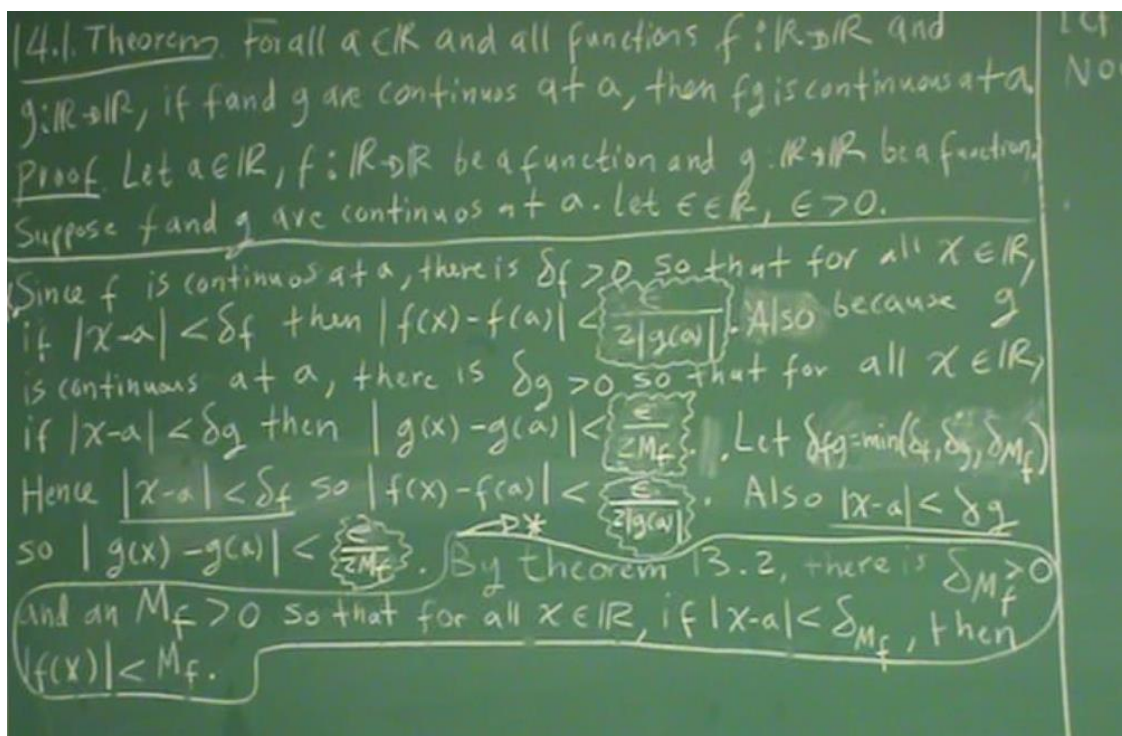 14.1. Theorem. For all a ∈ ℝ and all functions f : ℝ → ℝ and
g : ℝ → ℝ, if f and g are continuos at a, then fg is continuous at a.
Proof. Let a ∈ ℝ, f : ℝ → ℝ be a function and g : ℝ → ℝ be a function.
Suppose f and g are continuos at a. Let ϵ ∈ ℝ, ϵ > 0.
Since f is continuos at a, there is δ_f > 0 so that for all x ∈ ℝ,
if |x-a| < δ_f then |f(x) - f(a)| < ϵ/(2|g(a)|). Also because g
is continuous at a, there is δg > 0 so that for all x ∈ ℝ,
if |x-a| < δg then |g(x) - g(a)| < ϵ/(2M_f). Let δ_fg = min(δ_f, δg, δ_M_f)
Hence |x-a| < δ_f so |f(x) - f(a)| < ϵ/(2|g(a)|). Also |x-a| < δg
so |g(x) - g(a)| < ϵ/(2M_f). →* By theorem 13.2, there is δ_M_f > 0
and an M_f > 0 so that for all x ∈ ℝ, if |x-a| < δ_M_f, then
|f(x)| < M_f.